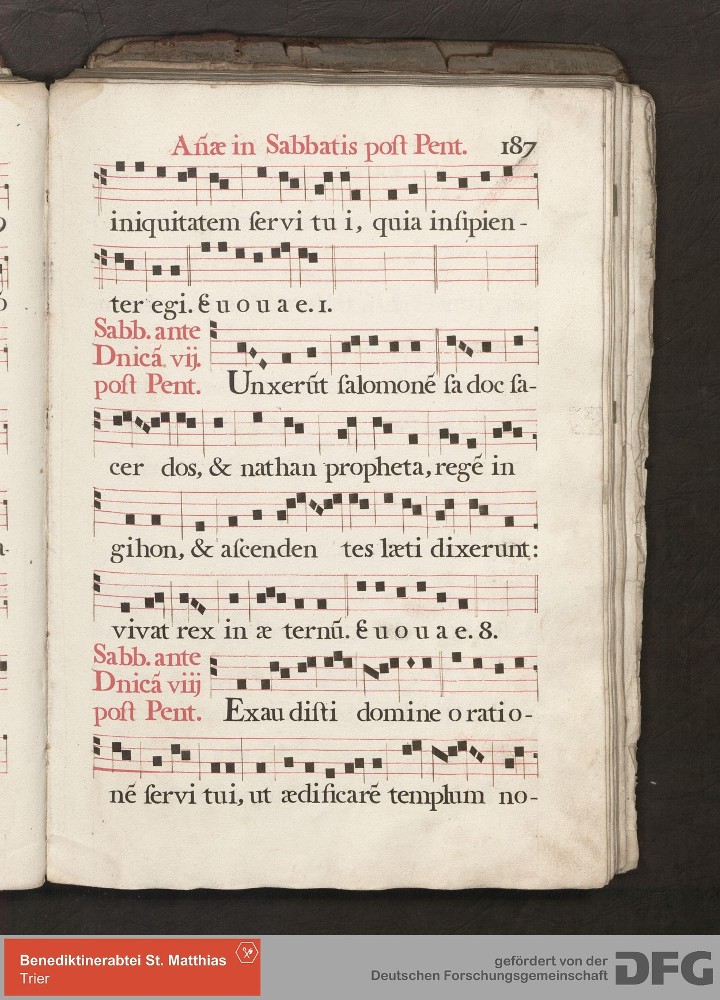 Añæ in Sabbatis poſt Pent. 187
iniquitatem ſervi tu i, quia inſipien-
ter egi. E u o u a e. 1.
Sabb. ante
Dnicã vij.
poſt Pent.
Unxerũt ſalomonẽ ſa doc ſa-
cer dos, & nathan propheta, regẽ in
gihon, & aſcenden tes læti dixerunt:
vivat rex in æ ternũ. E u o u a e. 8.
Sabb. ante
Dnicã viij
poſt Pent.
Exau diſti domine o ratio-
nẽ ſervi tui, ut ædificarẽ templum no-
Benediktinerabtei St. Matthias
Trier
gefördert von der
Deutschen Forschungsgemeinschaft
DFG